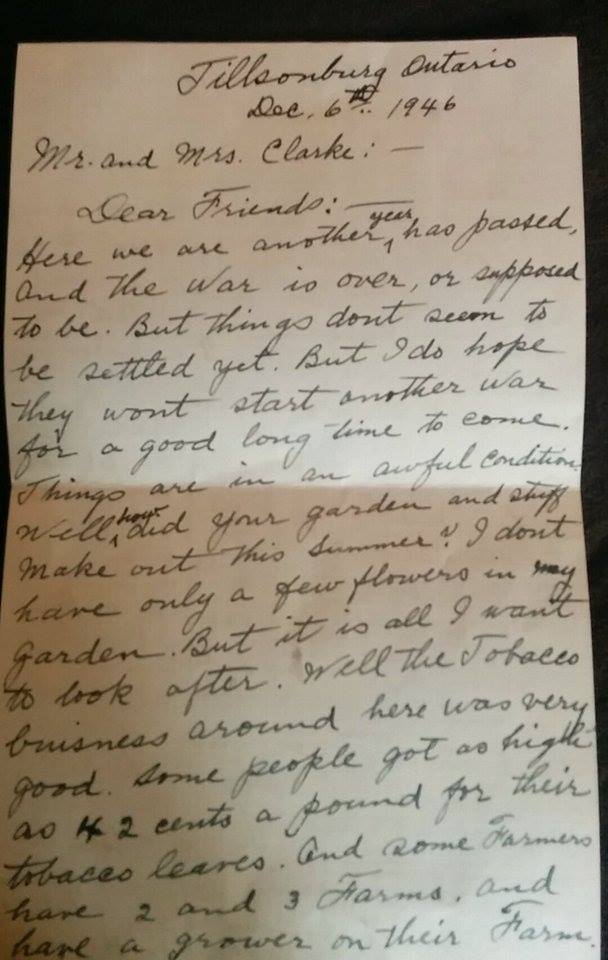 Tillsonburg Ontario
Dec, 6th. 1946
Mr. and Mrs. Clarke: —
Dear Friends: —
Here we are another year has passed,
and the war is over, or supposed
to be. But things dont seem to
be settled yet. But I do hope
they wont start another war
for a good long time to come.
Things are in an awful condition.
Well how did your garden and stuff
make out this summer? I dont
have only a few flowers in my
garden. But it is all I want
to look after. Well the Tobacco
buisness around here was very
good. Some people got as high
as 42 cents a pound for their
tobacco leaves. And some Farmers
have 2 and 3 Farms. and
have a grower on their Farm.